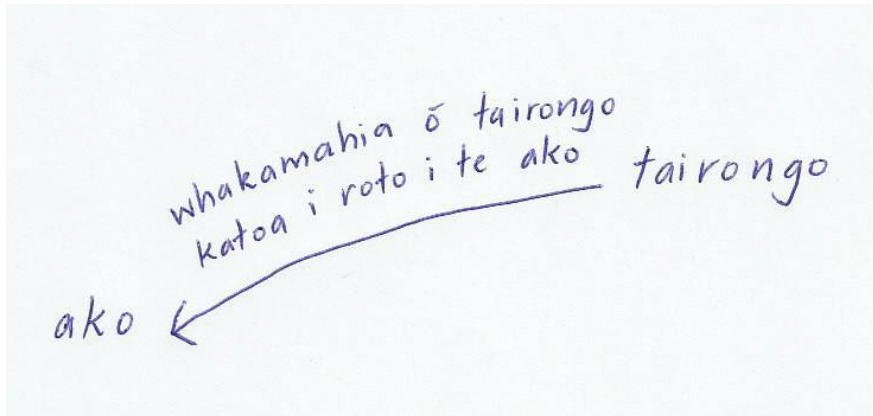 whakamahia ō tairongo
katoa i roto i te ako
tairongo
ako